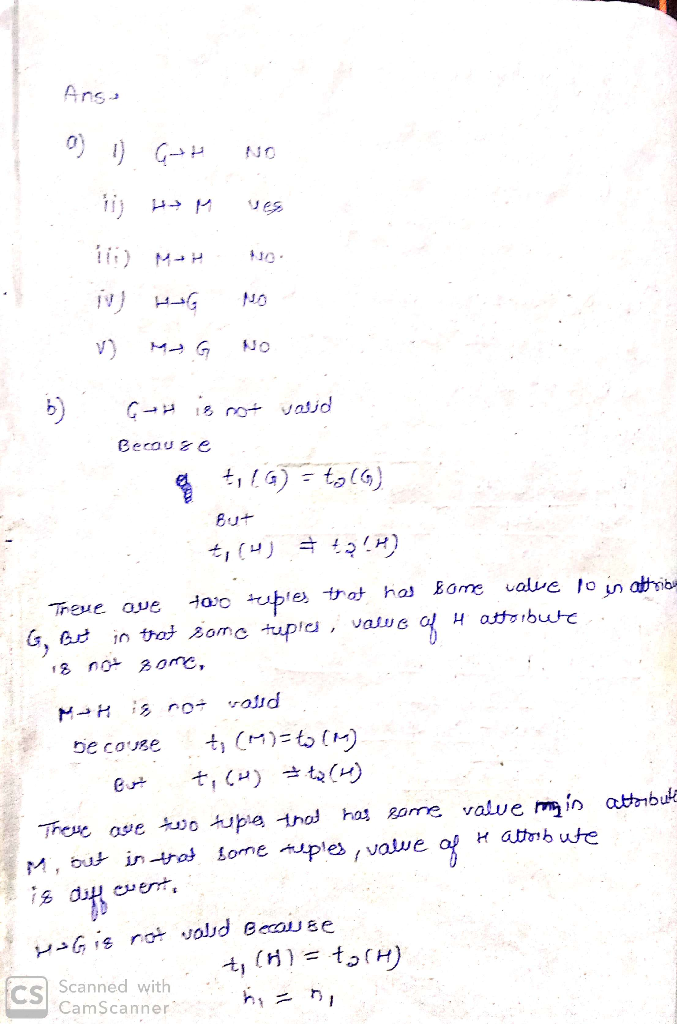 Ans→
a) i) G→H NO
ii) H→M yes
iii) M→H NO.
iv) H→G NO
v) M→G NO
b) G→H is not valid
Because
t₁(G) = t₂(G)
But
t₁(H) ≠ t₂(H)
There are two tuples that has same value 10 in attribu
G, But in that same tuples, value of H attribute
is not same.
M→H is not valid
because t₁(M)=t₂(M)
But t₁(H) ≠ t₂(H)
There are two tuples that has same value in attribute
M, but in that same tuples, value of H attribute
is different.
H→G is not valid Because
t₁(H) = t₂(H)
h₁ = h₁
CS Scanned with
CamScanner